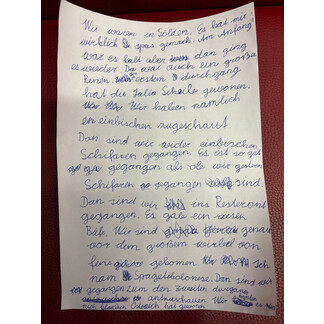 Wir waren in Sölden. Es hat mir
wirklich spas gemach. Am Anfang
war es kalt aber dan ging
es wieder. Da war auch ein großes
Renen. erstem durchgang
hat die Julia Scheile gewonen.
Wir haben nämlich
ein einbischen zugeschaut.
Dan sind wir wider einbischen
Schifaren gegangen. Es ist so gut
gegangen als ole wir gestern
Schifaren gegangen sind.
Dan sind wir ins Resteront
gegangen. Es gab ein riesen
Büfe. Wir sind genau
vor dem großem wirbel von
fens gekomen. Ich
nam Spagetibolonese. Dan sind wir
gegangen zum den zweiten durgang
antzuschauen. Wir
Österreich hat gewonen